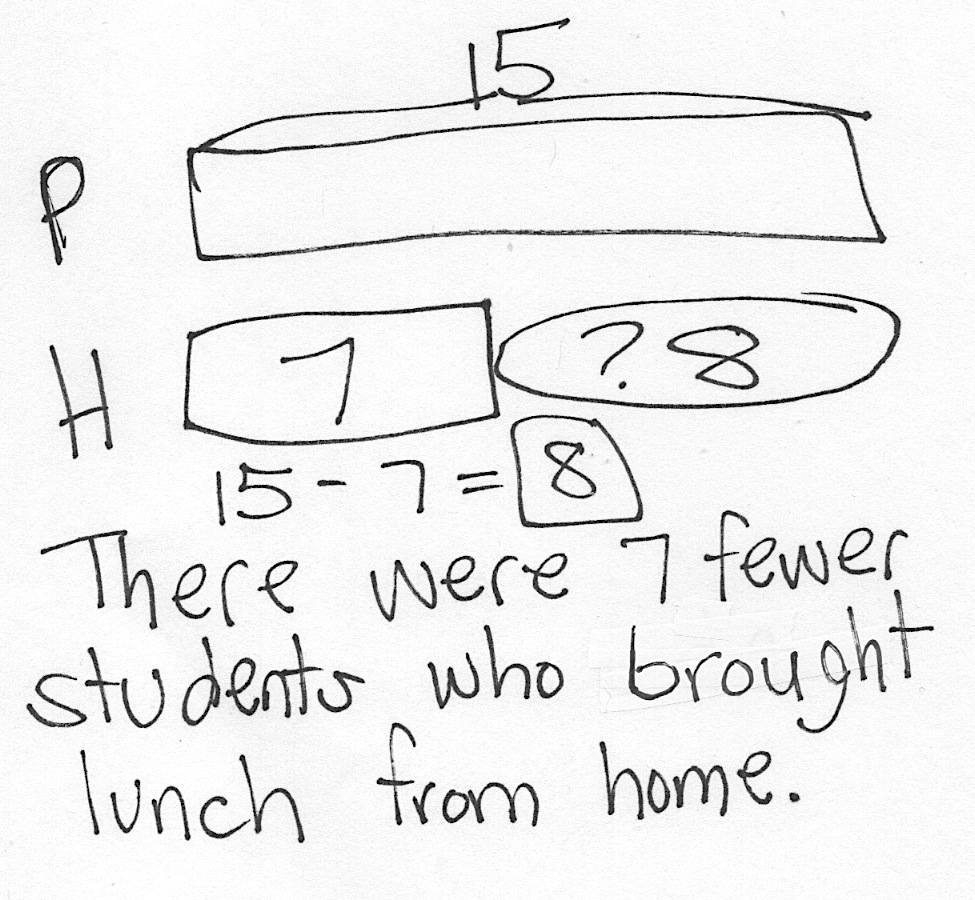 15
P
H 7 ? 8
15 - 7 = 8
There were 7 fewer
students who brought
lunch from home.